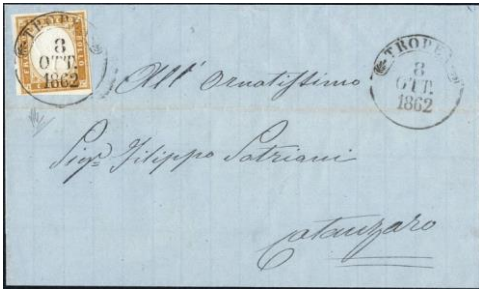 TROPEA
8
OTT.
1862
TROPEA
8
OTT.
1862
All' Ornatissimo
Sigr. Filippo Satriani
Catanzaro